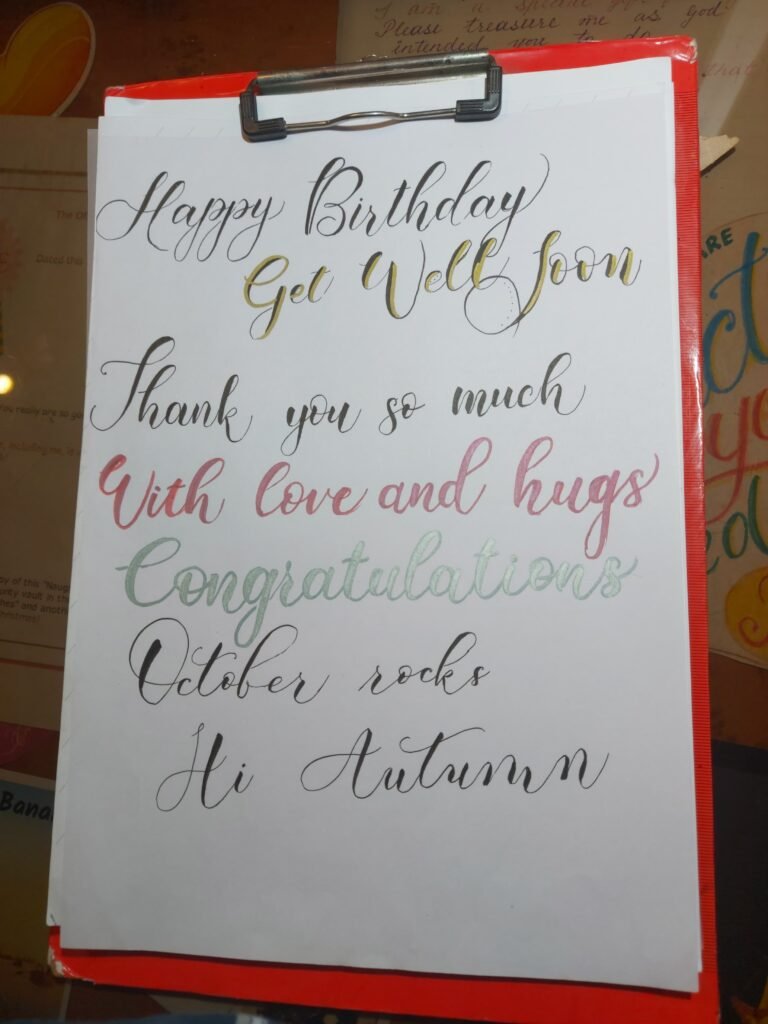 I am a special gift
Please treasure me as God
intended you to do
that
The
Dated this
ARE
Happy Birthday
Get Well Soon
Thank you so much
With love and hugs
Congratulations
October rocks
Hi Autumn
you
You really are so
including me,
py of this "Naug
ority vault in th
hes" and anoth
hristmas!
Bana